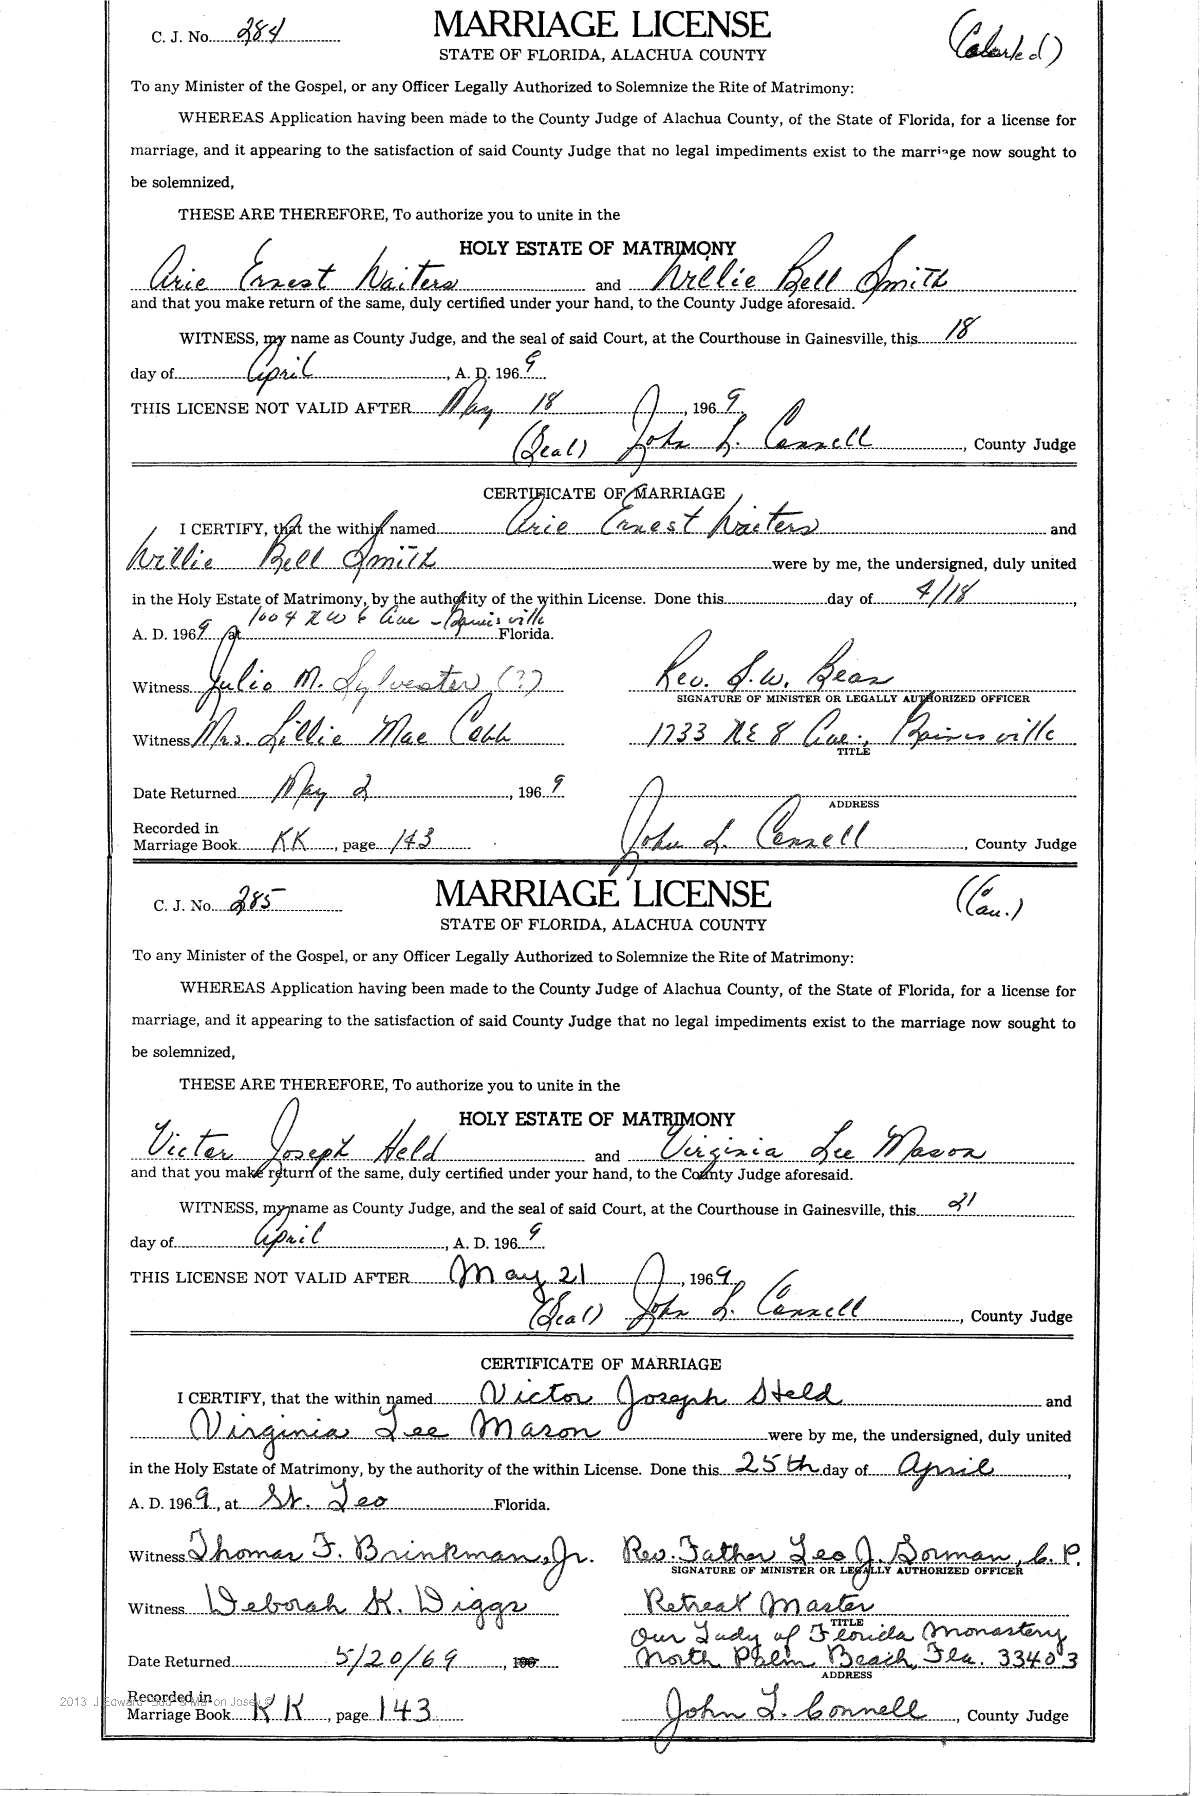 C. J. No. 284
MARRIAGE LICENSE
(Colored)
STATE OF FLORIDA, ALACHUA COUNTY
To any Minister of the Gospel, or any Officer Legally Authorized to Solemnize the Rite of Matrimony:
WHEREAS Application having been made to the County Judge of Alachua County, of the State of Florida, for a license for
marriage, and it appearing to the satisfaction of said County Judge that no legal impediments exist to the marriage now sought to
be solemnized,
THESE ARE THEREFORE, To authorize you to unite in the
HOLY ESTATE OF MATRIMONY
Arie Ernest Waiters and Willie Bell Smith
and that you make return of the same, duly certified under your hand, to the County Judge aforesaid.
WITNESS, my name as County Judge, and the seal of said Court, at the Courthouse in Gainesville, this 18
day of April, A. D. 1969
THIS LICENSE NOT VALID AFTER May 18, 1969
(Seal) John L. Connell, County Judge
CERTIFICATE OF MARRIAGE
I CERTIFY, that the within named Arie Ernest Waiters and
Willie Bell Smith were by me, the undersigned, duly united
in the Holy Estate of Matrimony, by the authority of the within License. Done this day of 4/18,
A. D. 1969 at 1004 N W 6 Ave - Gainesville Florida.
Witness Julio M. Sylvester (?) Rev. S. W. Bean
SIGNATURE OF MINISTER OR LEGALLY AUTHORIZED OFFICER
Witness Mrs. Lillie Mae Cobb 1733 NE 8 Ave., Gainesville
TITLE
Date Returned May 2, 1969
ADDRESS
Recorded in
Marriage Book KK, page 143 John L. Connell, County Judge
C. J. No. 285
MARRIAGE LICENSE
(Cau.)
STATE OF FLORIDA, ALACHUA COUNTY
To any Minister of the Gospel, or any Officer Legally Authorized to Solemnize the Rite of Matrimony:
WHEREAS Application having been made to the County Judge of Alachua County, of the State of Florida, for a license for
marriage, and it appearing to the satisfaction of said County Judge that no legal impediments exist to the marriage now sought to
be solemnized,
THESE ARE THEREFORE, To authorize you to unite in the
HOLY ESTATE OF MATRIMONY
Victor Joseph Held and Virginia Lee Mason
and that you make return of the same, duly certified under your hand, to the County Judge aforesaid.
WITNESS, my name as County Judge, and the seal of said Court, at the Courthouse in Gainesville, this 21
day of April, A. D. 1969
THIS LICENSE NOT VALID AFTER May 21, 1969
(Seal) John L. Connell, County Judge
CERTIFICATE OF MARRIAGE
I CERTIFY, that the within named Victor Joseph Held and
Virginia Lee Mason were by me, the undersigned, duly united
in the Holy Estate of Matrimony, by the authority of the within License. Done this 25th day of April,
A. D. 1969, at St. Leo Florida.
Witness Thomas F. Brinkman, Jr. Rev. Father Leo J. Gorman, C. P.
SIGNATURE OF MINISTER OR LEGALLY AUTHORIZED OFFICER
Witness Deborah K. Diggs Retreat Master
TITLE
Our Lady of Florida Monastery
Date Returned 5/20/69, 196 North Palm Beach, Fla. 33403
ADDRESS
Recorded in
Marriage Book KK, page 143 John L. Connell, County Judge
2013 J Edward